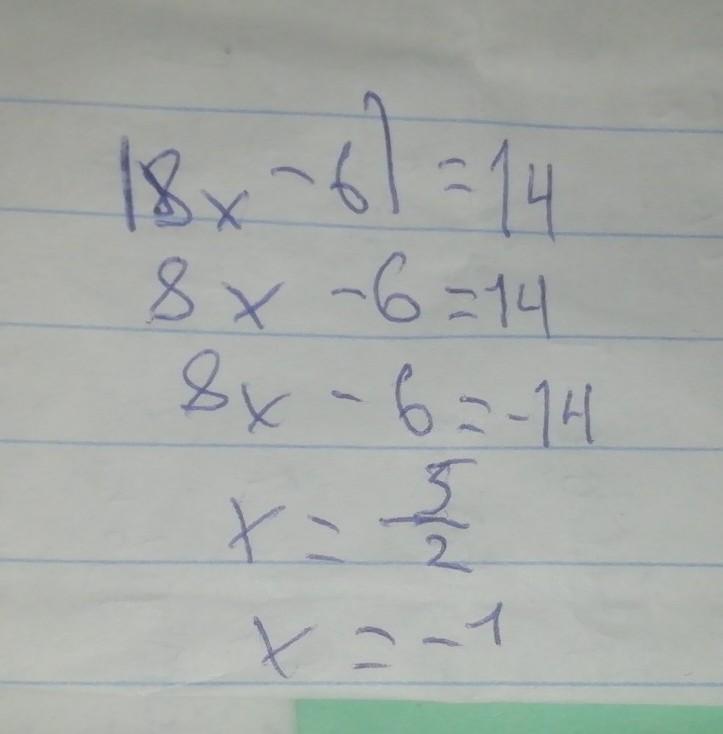 |8x - 6| = 14
8x - 6 = 14
8x - 6 = -14
x = 5/2
x = -1